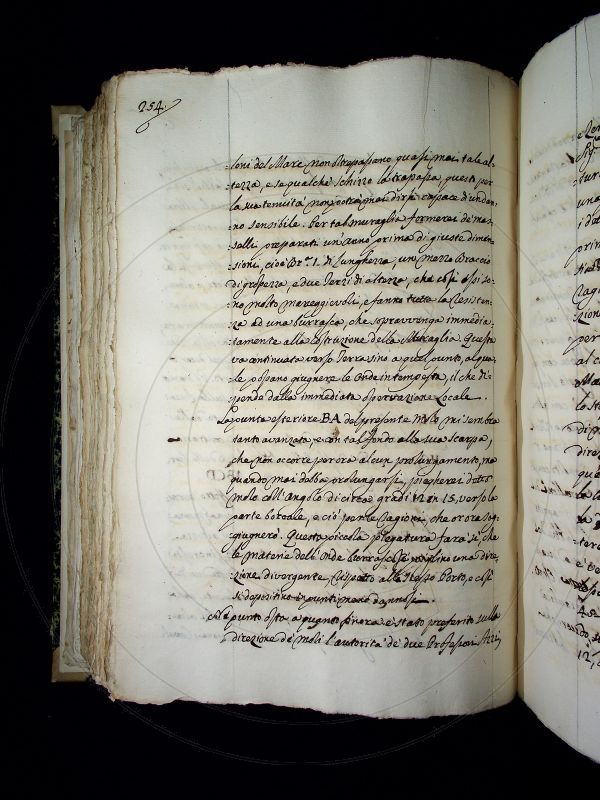 254.
:loni del Mare non oltrepassano quasi mai tale al:
:tezza, e se qualche schizzo la trapassa, questo per
la sua tenuità non potrà mai dirsi capace d'un dan:
:no sensibile. Per tal muraglia formerei de' mas:
:selli preparati un'anno prima di giuste dimen:
:sioni, cioè Br.ª 1. di lunghezza, un mezzo Braccio
di grossezza, e due terzi di altezza, che così essi so:
:no molto maneggievoli, e fanno tutta la resisten:
:za ad una burrasca, che sopravvenga immedia:
:tamente alla costruzione della Muraglia. Questa
va continuata verso Terra sino a quel punto, al qua:
:le possano giugnere le Onde in tempesta, il che di:
:pende dalla immediata osservazione Locale.
La punta esteriore BA del presente Molo mi sembra
tanto avanzata, e con tal fondo alla sua scarpa,
che non occorre per ora alcun prolungamento, ma
quando mai debba prolungarsi, piegherei detto
molo coll'angolo di circa gradi 12 in 15, verso la
parte boreale, e ciò per le ragioni, che or ora sog:
:giugnerò. Questa piccola piegatura farà sì, che
le materie dell'Onde burrascose una dire:
:zione divergente, rispetto allo stesso Porto, e così
si depositino in punti meno dannosi.
Nè punto osta a quanto finora è stato preferito sulla
direzione de' moli l'autorità de' due Professori